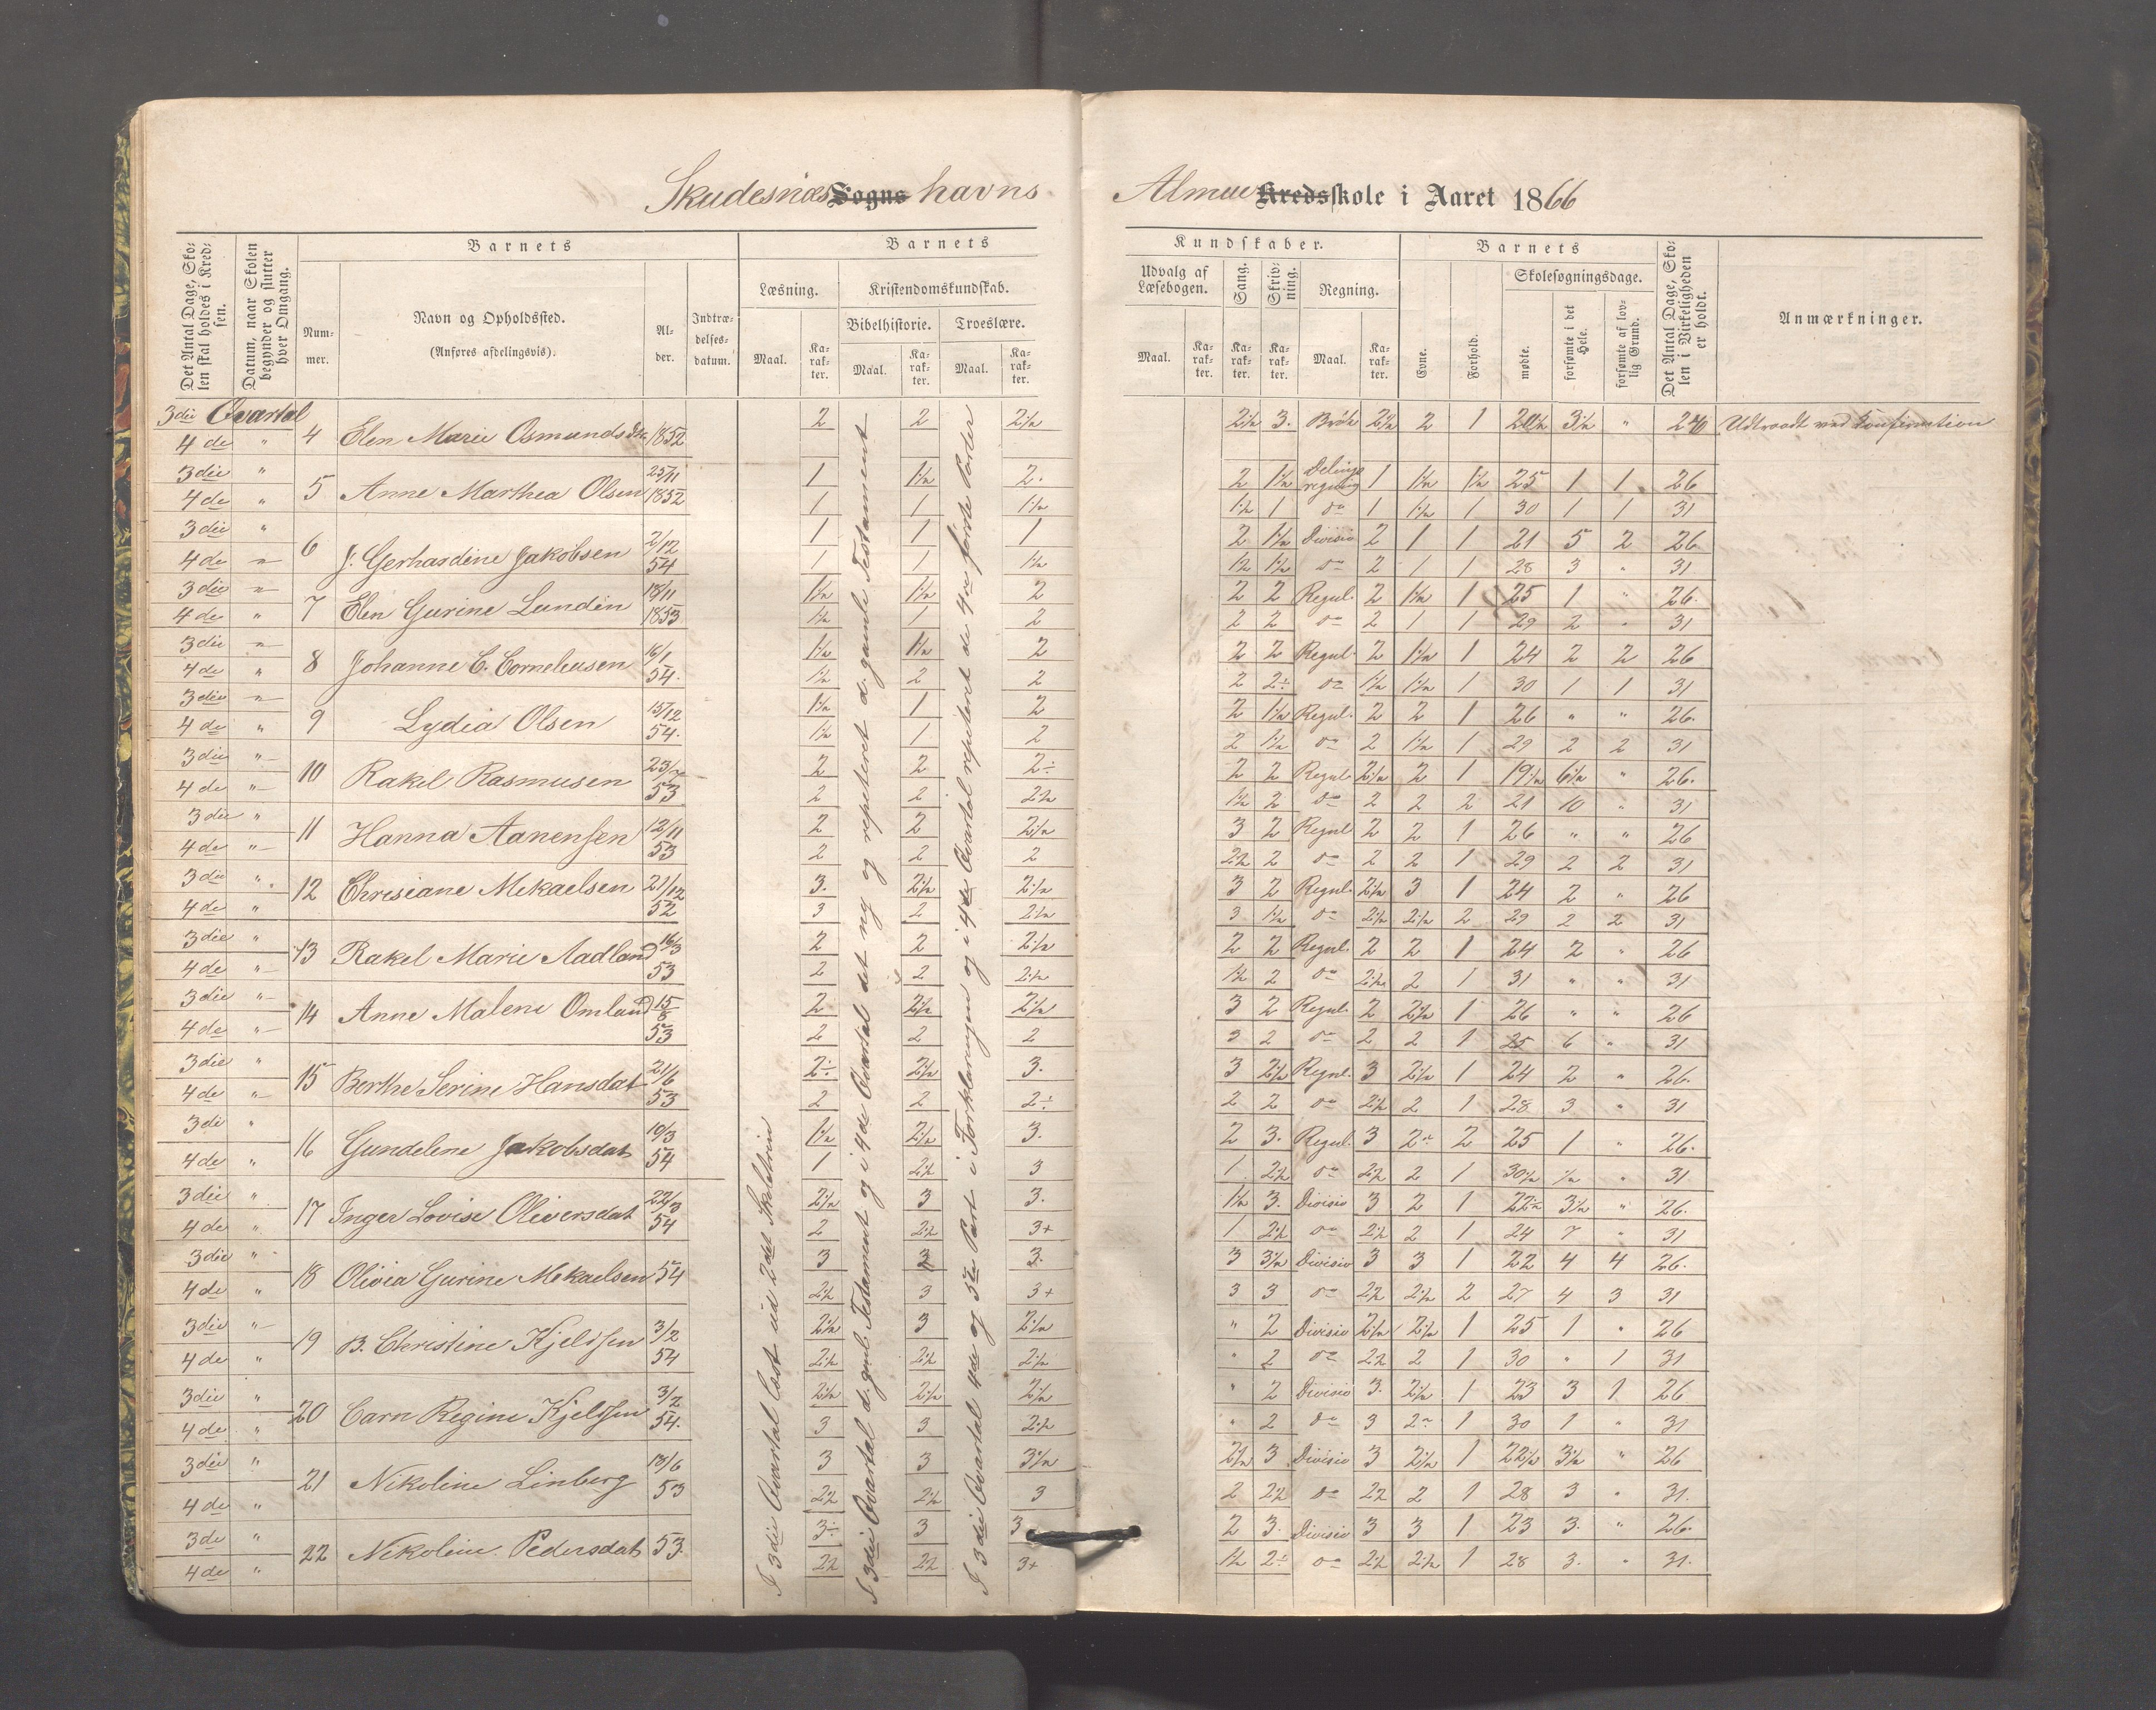 Skudesnæs Sogns havns Almue Kredsskole i Aaret 1866
Det Antal Dage, Skolen skal holdes i Kredsen.
Datum, naar Skolen begynder og slutter hver Omgang.
Barnets
Nummer.
Navn og Opholdssted.
(Anføres afdelingsvis).
Alder.
Indtrædelsesdatum.
Barnets
Læsning.
Maal.
Karakter.
Kristendomskundskab.
Bibelhistorie.
Maal.
Karakter.
Troeslære.
Maal.
Karakter.
Kundskaber.
Udvalg af Læsebogen.
Maal.
Karakter.
Sang.
Karakter.
Skrivning.
Karakter.
Regning.
Maal.
Karakter.
Barnets
Evne.
Forhold.
Skolesøgningsdage.
mødte.
forsømte i det Hele.
forsømte af lovlig Grund.
Det Antal Dage, Skolen i Virkeligheden er holdt.
Anmærkninger.
3die Qvartal 4 Elen Marie Osmundsdtr 1852 2 2 2½ 2½ 3. Brøk 2½ 2 1 20½ 3½ " Udtraadt ved Konfirmation
4de "
3die " 5 Anne Marthea Olsen 25/11 1852 1 1½ 2. 2 1½ Delings regning 1 1½ 1½ 25 1 1 26
4de " 1 1 1½ 1½ 1 do 1 1½ 1 30 1 1 31
3die " 6 J. Gerhardine Jakobsen 2/12 54 1 1 1 2 1½ Divisio 2 1 1 21 5 2 26
4de " 1 1 1½ 1½ 1½ do 2 1 1 28 3 " 31
3die " 7 Elen Gurine Lundin 18/11 1853 1½ 1½ 2 2 2 Regul. 2 1½ 1 25 1 " 26.
4de " 1½ 1 2 2 2 do 2 1 1 29 2 " 31
3die " 8 Johanne C. Corneliusen 16/1 54. 1½ 1½ 2 2 2 Regul. 2 1½ 1 24 2 2 26
4de " 1½ 2 2 2 2÷ do 1½ 1½ 1 30 1 1 31
3die " 9 Lydia Olsen 15/12 54. 1½ 1 2 2 1½ Regul. 2 2 1 26 " " 26.
4de " 1½ 1 2 2 1½ do 2 1½ 1 29 2 2 31
3die " 10 Rakel Rasmusen 53 2 2 2÷ 2 2 Regul 2½ 2 1 19½ 6½ " 26.
4de " 2 2 2½ 1½ 2 do 2 2 2 21 10 " 31
3die " 11 Hanna Aanensen 12/11 53 2 2 2½ 3 2 Regul 2 2 1 26 " " 26
4de " 2 2 2 2½ 2 do 2 2 1 29 2 2 31
3die " 12 Chrisiane Mekaelsen 21/12 52 3. 2½ 2½ 3 2 Regul. 2½ 3 1 24 2 " 26
4de " 3 2 2½ 3 1½ do 2½ 2½ 2 29 2 2 31
3die " 13 Rakel Marie Aadland 16/3 53 2 2 2½ 2 2 Regul. 2 2 1 24 2 " 26
4de " 2 2 2½ 1½ 2 do 2½ 2 1 31 " " 31
3die " 14 Anne Malene Omland 15/8 53 2 2½ 2½ 3 2 Regul. 2 2½ 1 26 " " 26
4de " 2 2 2 3 2 do 2 2 1 25 6 " 31
3die " 15 Berthe Serine Hansdat 21/6 53 2÷ 2½ 3. 3 2½ Regul. 3 2½ 1 24 2 " 26.
4de " 2 2 2÷ 2 2 do 2½ 2 1 28 3 " 31
3di " 16 Gundelene Jakobsdat 10/3 54 1½ 2½ 3. 2 3. Regul. 3 2 2 25 1 " 26.
4de " 1 2½ 3 1 2½ do 2½ 2 1 30½ ½ " 31
3die " 17 Inger Lovise Oliversdat 22/3 54 2½ 3 3. 1½ 3. Divisio 3 2 1 22½ 3½ " 26.
4de " 2 2½ 3+ 1 2½ do 2½ 2 1 24 7 " 31
3die " 18 Olivia Gurine Mekaelsen 54 3 3 3. 3 3½ Divisio 3 3 1 22 4 4 26.
4de " 2½ 3 3+ 3 3 do 2½ 2½ 2 27 4 3 31
3die " 19 B. Christine Kjelssen 3/2 54 2½ 3 2½ " 2 Divisio 2½ 2½ 1 25 1 " 26
4de " 2½ 2½ 2½ " 2 do 2½ 2 1 30 " 1 31
3die " 20 Carn Regine Kjelssen 3/2 54. 2½ 2½ 2½ " 2 Divisio 3. 2½ 1 23 3 1 26
4de " 3 3 2½ " 2 do 3 2 1 30 1 " 31
3die " 21 Nikoline Linberg 13/6 53 3 3 3½ 2½ 3 Divisio 3 2½ 1 22½ 3½ " 26
4de " 2½ 2½ 3 2 2½ do 2½ 2 1 28 3 " 31.
3die " 22 Nikoline Pedersdat 53. 3÷ 3 3 2 3. Divisio 3 3 1 23 3. " 26.
4de " 2½ 2½ 3+ 1½ 2÷ do 2½ 2½ 1 28 3. " 31.
I 3die Qvartal læst ud 2det Skoletrin
I 3die Qvartal d. gml. Testament og i 4de Qvartal det ny og repiteret d. gamle Testament
I 3die Qvartal 4de og 5te Part i Forklaringen og i 4de Qvartal repiteret de 4re første Parter